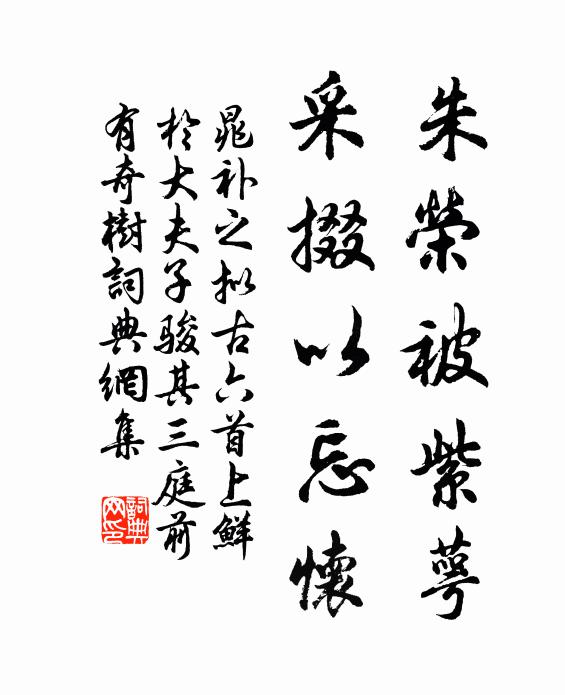 朱榮被紫萼
采掇以忘懷
晁补之拟古六首上鮮
於大夫子駿其三庭前
有奇樹詞典網集
詞典網印